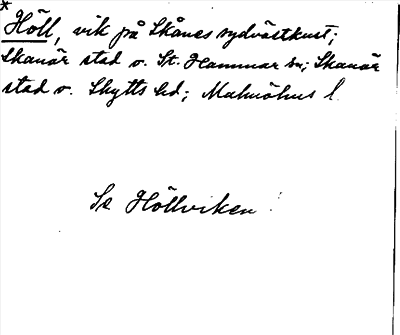 * Höll, vik på Skånes sydvästkust;
Skanör stad o. St. Hammar sn; Skanör
stad o. Skytts hd; Malmöhus l.
Se Höllviken!